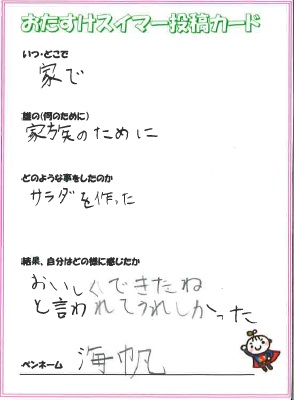 おたすけスイマー投稿カード
いつ・どこで
家で
誰の(何のために)
家族のために
どのような事をしたのか
サラダを作った
結果、自分はどの様に感じたか
おいしくできたね
と言われてうれしかった
ペンネーム 海帆